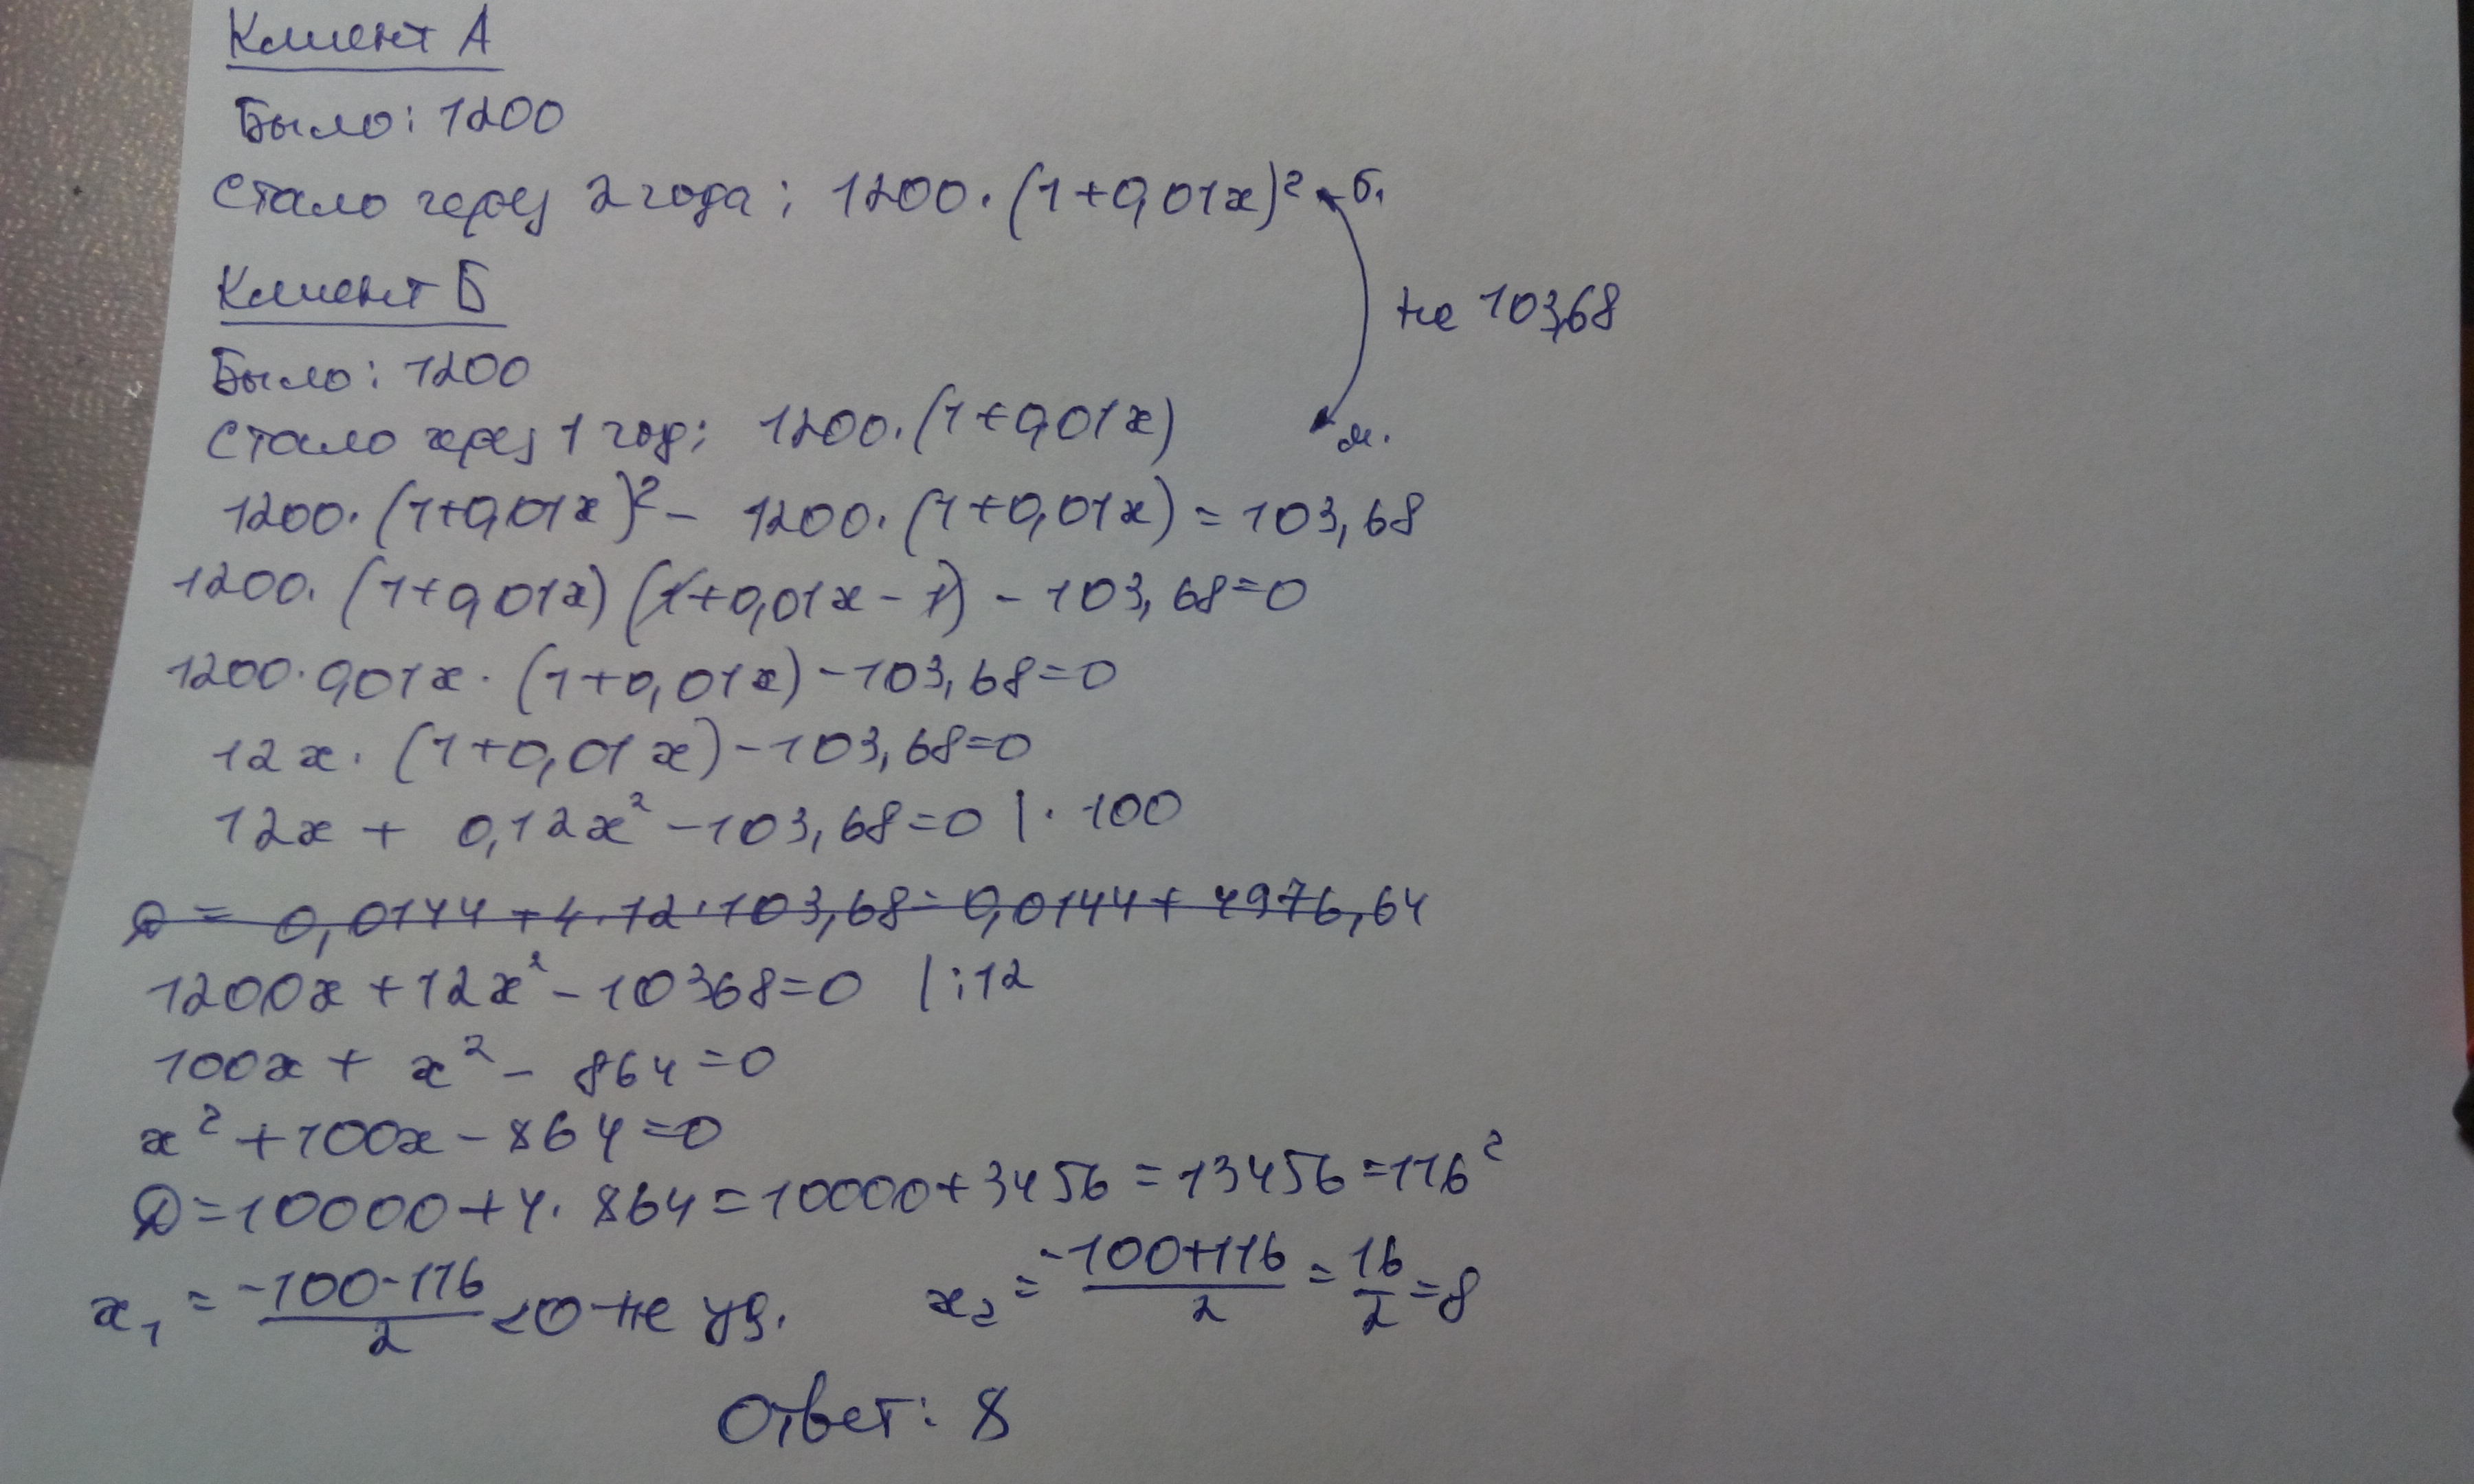 Клиент А
Было: 1200
Стало через 2 года: 1200·(1+0,01x)² б.
Клиент Б
на 103,68
Было: 1200
Стало через 1 год: 1200·(1+0,01x) м.
1200·(1+0,01x)² - 1200·(1+0,01x) = 103,68
1200·(1+0,01x)(1+0,01x-1) - 103,68=0
1200·0,01x·(1+0,01x)-103,68=0
12x·(1+0,01x)-103,68=0
12x + 0,12x²-103,68=0 |·100
D= 0,0144+4·12·103,68=0,0144+4976,64
1200x+12x²-10368=0 |:12
100x+x²-864=0
x²+100x-864=0
D=10000+4·864=10000+3456=13456=116²
x₁=(-100-116)/2<0-не уд. x₂=(-100+116)/2=16/2=8
Ответ: 8